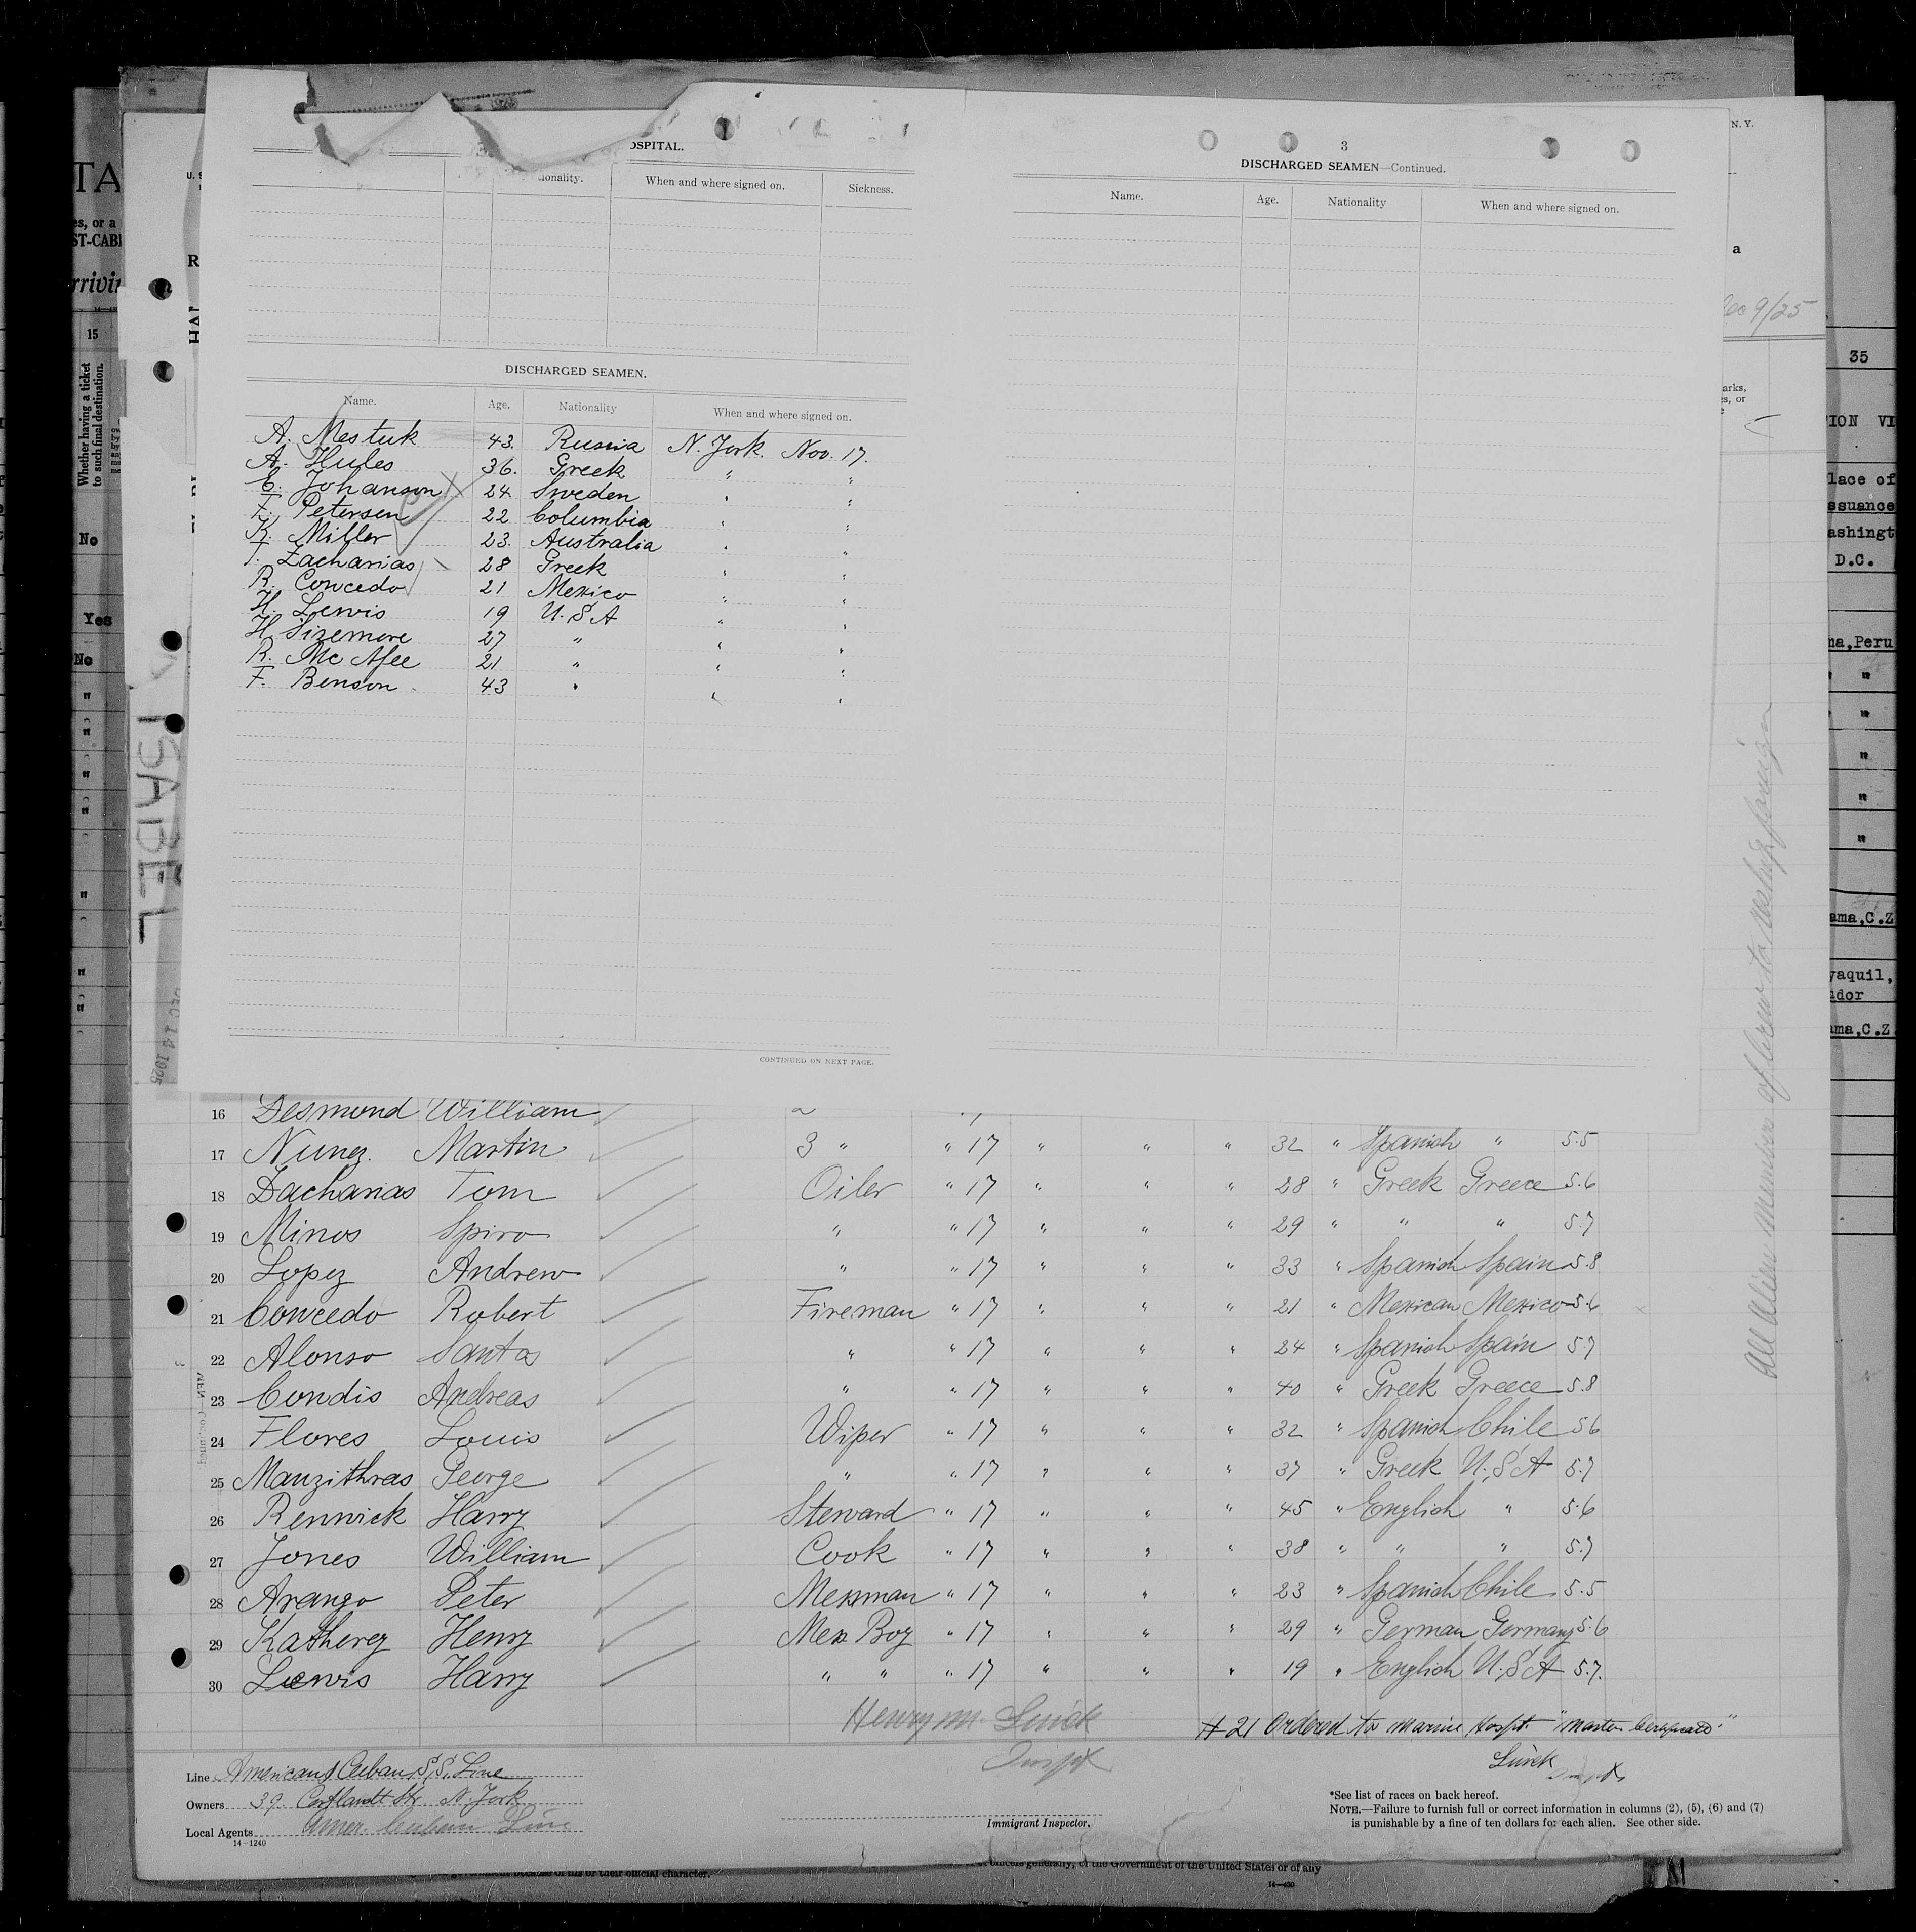 OSPITAL.
ionality. When and where signed on. Sickness.
DISCHARGED SEAMEN.
Name. Age. Nationality When and where signed on.
A. Mestuk 43. Russia N. York. Nov. 17.
A. Hules 36. Greek " "
E. Johanson 24 Sweden " "
F. Petersen 22 Columbia " "
K. Miller 23. Australia " "
T. Zacharias 28 Greek " "
R. Concedo 21 Mexico " "
H. Lewis 19 U.S.A " "
H. Sizemore 27 " " "
R. Mc Afee 21 " " "
F. Benson 43 " " "
CONTINUED ON NEXT PAGE.
3
DISCHARGED SEAMEN—Continued.
Name. Age. Nationality When and where signed on.
N. Y.
a
Dec 9/25
arks,
s, or
e
TA
es, or a
ST-CABI
rrivin
15
Whether having a ticket
to such final destination.
No
Yes
No
35
ION VI
lace of
ssuance
ashingt
D.C.
ma, Peru
ama, C.Z
yaquil,
ador
ama, C.Z
ISABEL
DEC 14 1925
All Alien members of crew to reship foreign
16 Desmond William
17 Nunez. Martin 3 " " 17 " " " 32 " Spanish " 5.5
18 Zacharias Tom Oiler " 17 " " " 28 " Greek Greece 5.6
19 Minos Spiro " " 17 " " " 29 " " " 5.7
20 Lopez Andrew " " 17 " " " 33 " Spanish Spain 5.8
21 Concedo Robert Fireman " 17 " " " 21 " Mexican Mexico 5.6
22 Alonso Santos " " 17 " " " 24 " Spanish Spain 5.7
23 Condis Andreas " " 17 " " " 40 " Greek Greece 5.8
24 Flores Louis Wiper " 17 " " " 32 " Spanish Chile 5 6
25 Manzithras George " " 17 " " " 37 " Greek U.S.A 5.7
26 Rennick Harry Steward " 17 " " " 45 " English " 5.6
27 Jones William Cook " 17 " " " 38 " " " 5.7
28 Arango Peter Messman " 17 " " " 23 " Spanish Chile 5.5
29 Katherez Henry Mess Boy " 17 " " " 29 " German Germany 5.6
30 Lewis Harry " " " 17 " " " 19 " English U.S.A 5.7.
Henry M. Linck
Inspt
# 21 Ordered to Marine Hospt. "Masters Certificate"
Linck
Inspt
Line American & Cuban S.S. Line
Owners 39. Cortlandt Str. N. York
Local Agents Amer. Cuban Line
14—1240
Immigrant Inspector.
*See list of races on back hereof.
NOTE.—Failure to furnish full or correct information in columns (2), (5), (6) and (7)
is punishable by a fine of ten dollars for each alien. See other side.
because of his or their official character.
officers generally, of the Government of the United States or of any